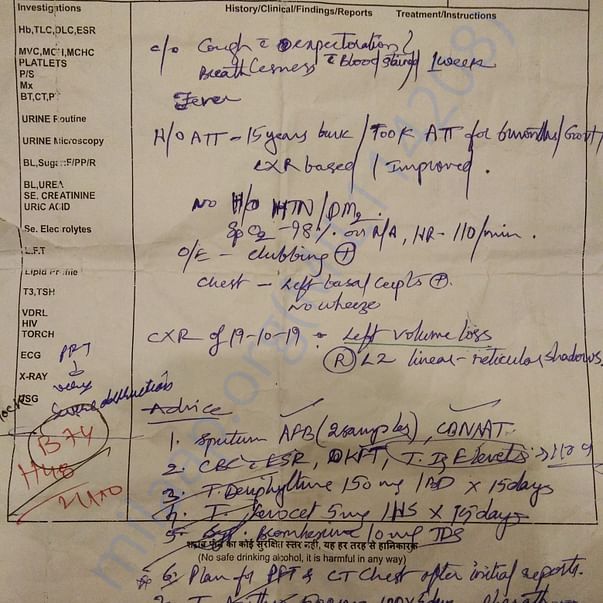 Investigations
History/Clinical/Findings/Reports Treatment/Instructions
Hb,TLC,DLC,ESR
MVC,MCH,MCHC
PLATELETS
P/S
Mx
BT,CT,P
URINE Routine
URINE Microscopy
BL,Sugar F/PP/R
BL,UREA
SE. CREATININE
URIC ACID
Se. Elec rolytes
L.F.T
Lipid Profile
T3,TSH
VDRL
HIV
TORCH
ECG
X-RAY
USG
PFT
severe
B74
H48
c/o Cough c expectoration
Breathlessness c Blood stained / 1 week
Fever
H/O ATT - 15 years back / Took ATT for 6 months / Govt
CXR based / Improved.
No H/O HTN / DM2.
SpO2 - 98% on R/A, HR - 110/min.
O/E - clubbing +
Chest - Left basal crepts +
No wheeze
CXR of 19-10-19 - Left volume loss
(R) LZ linear-reticular shadows.
Advice
1. Sputum AFB (2 samples), CBNAAT.
2. CBC c ESR, KFT, T. IgE levels
3. T. Deriphylline 150 mg 1 BD x 15 days
4. T. 5mg 1 HS x 15 days
5. Bromhexine 10 mg TDS
शराब पीने का कोई सुरक्षित स्तर नहीं, यह हर तरह से हानिकारक
(No safe drinking alcohol, it is harmful in any way)
6. Plan for PFT & CT Chest after initial reports.
milaap.org